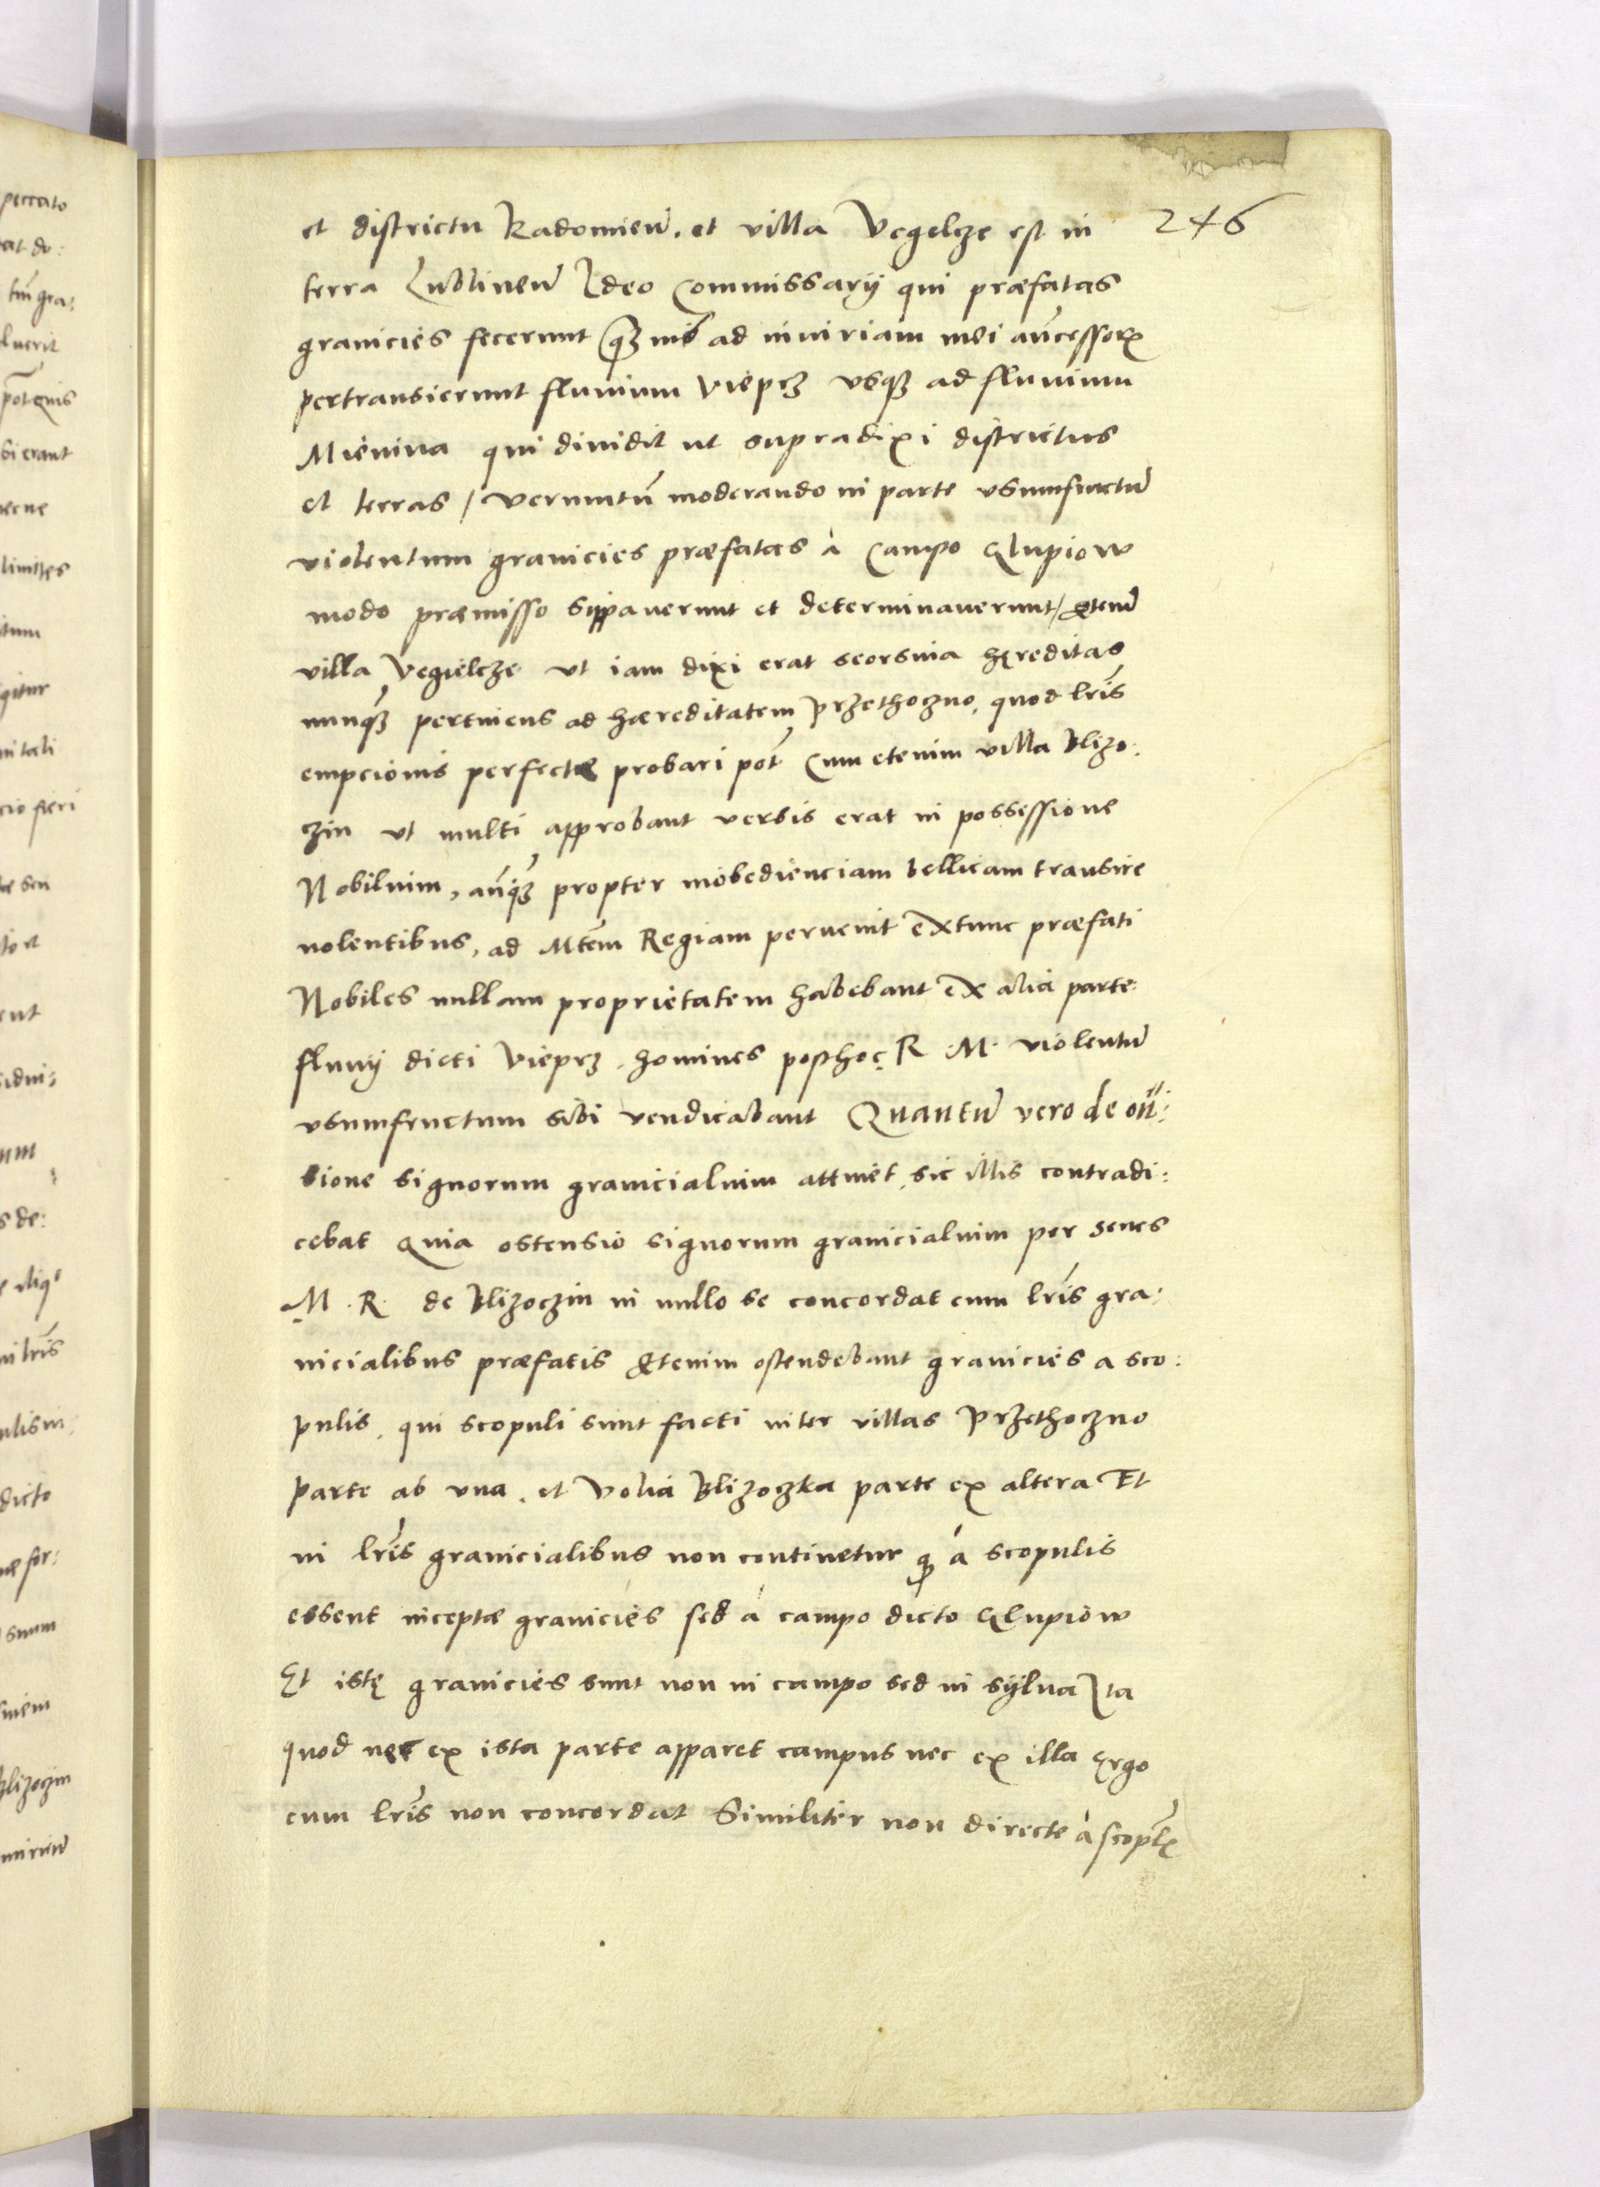 et districtu Radomien̄. et villa Vegelcze est in 246
terra Lublinen̄ Ideo Commissarij qui præfatas
granicies fecerunt ad iniuriam mei añcessorꝝ
pertransierunt fluuium Vieprz vsqꝫ ad fluuium
Mienina qui diuidit ut supradixi districtus
et terras / verumtn̄ moderando in parte vsumfructū
violentum granicies præfatas à Campo Glupiow
modo præmisso sippauerunt et determinauerunt / etenī
villa Vegielcze ut iam dixi erat seorsiua hęreditas
nunqꝫ pertinens ad hæreditatem Przethoczno, quod lr̄is
empcionis perfectæ probari pōt Cum etenim villa Blizo:
czin ut multi approbant verbis erat in possessione
Nobilium, añqꝫ propter inobedienciam bellicam transire
nolentibus, ad Mtem̄ Regiam peruenit Extunc præfati
Nobiles nullam proprietatem habebant ex alia parte
fluuij dicti Vieprz. homines posthoc R. M. violentū
vsumfructum sibi vendicabant Quantū vero de
sione signorum granicialium attinet, sic illis contradi:
cebat Quia ostensio signorum granicialium per senes
M. R. de Blizoczin in nullo se concordat cum lr̄is gra:
nicialibus præfatis Etenim ostendebant granicies a sco:
pulis, qui scopuli sunt facti inter villas Przethoczno
parte ab una, et Volia Blizoczka parte ex altera Et
in lr̄is granicialibus non continetur ꝙ à scopulis
essent inceptæ granicies sed à campo dicto Glupiow
Et istę granicies sunt non in campo sed in sylua Ita
quod nec ex ista parte apparet campus nec ex illa Ergo
cum lr̄is non concordat Similiter non directe à